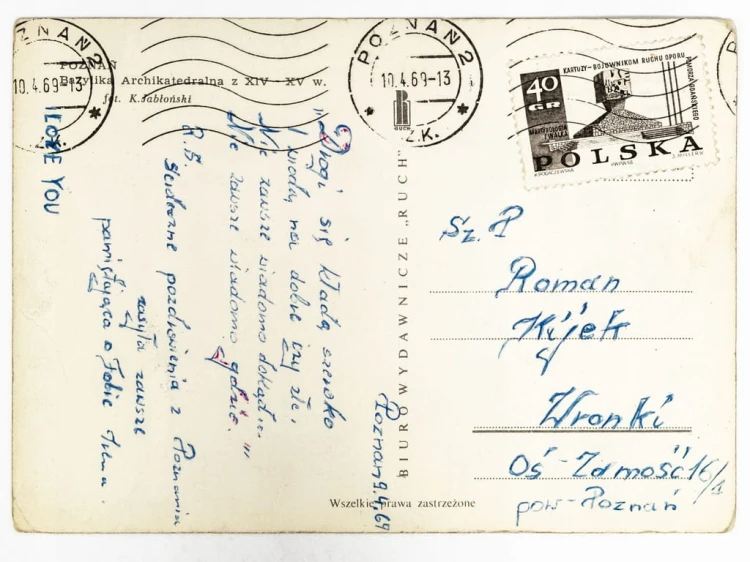 POZNAŃ
Bazylika Archikatedralna z XIV - XV w.
fot. K. Jabłoński
POZNAŃ 2
10.4.69-13
Z.K.
POZNAŃ 2
10.4.69-13
Z.K.
RUCH
40
GR
KARTUZY - BOJOWNIKOM RUCHU OPORU
POLSKA
I LOVE YOU
"Drogi się kładą szeroko
I wiodą na dobre czy złe,
Nie zawsze wiadomo dokąd...
Nie zawsze wiadomo gdzie."
R.B.
Serdeczne pozdrowienia z Poznania
zasyła zawsze
pamiętająca o Tobie
Poznań 9.4.69
BIURO WYDAWNICZE „RUCH"
Wszelkie prawa zastrzeżone
Sz. P
Roman
Kijek
Wronki
Oś-Zamość 16/1
pow-Poznań